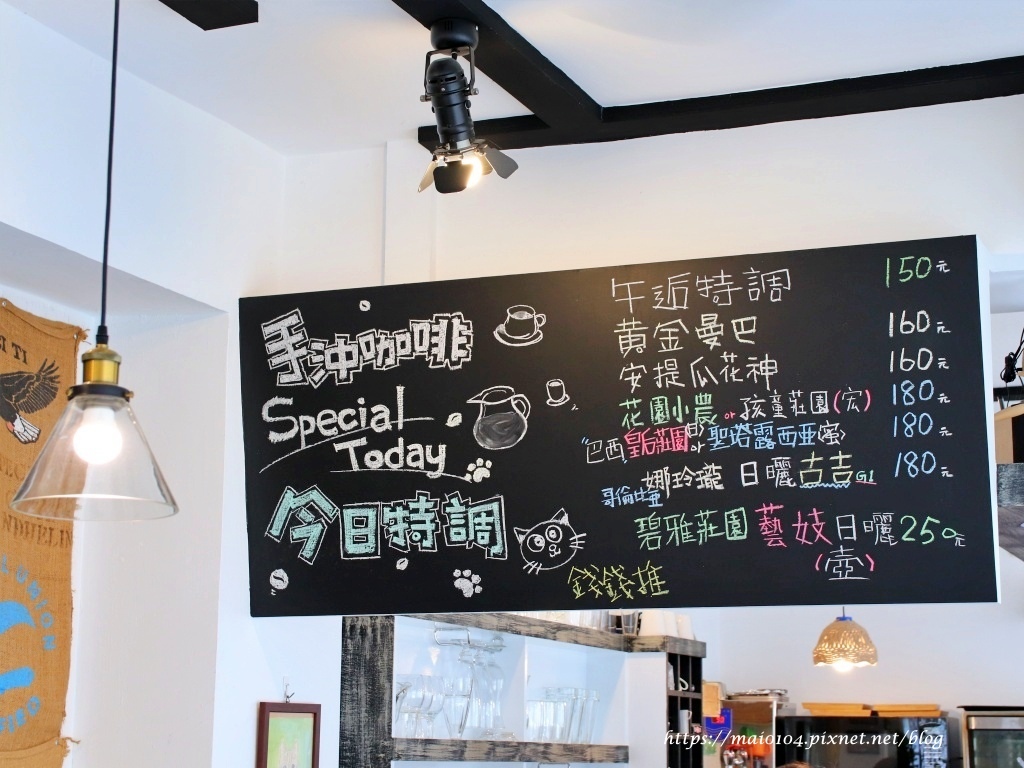 手沖咖啡
Special
Today
今日特調
午逅特調 150元
黃金曼巴 160元
安提瓜花神 160元
花園小農or孩童莊園(宏) 180元
巴西皇后莊園 or 聖塔露西亞(蜜) 180元
娜玲瓏 日曬古吉G1 180元
哥倫比亞
碧雅莊園藝妓日曬250元
(壺)
錢錢進
https://maio104.pixnet.net/blog